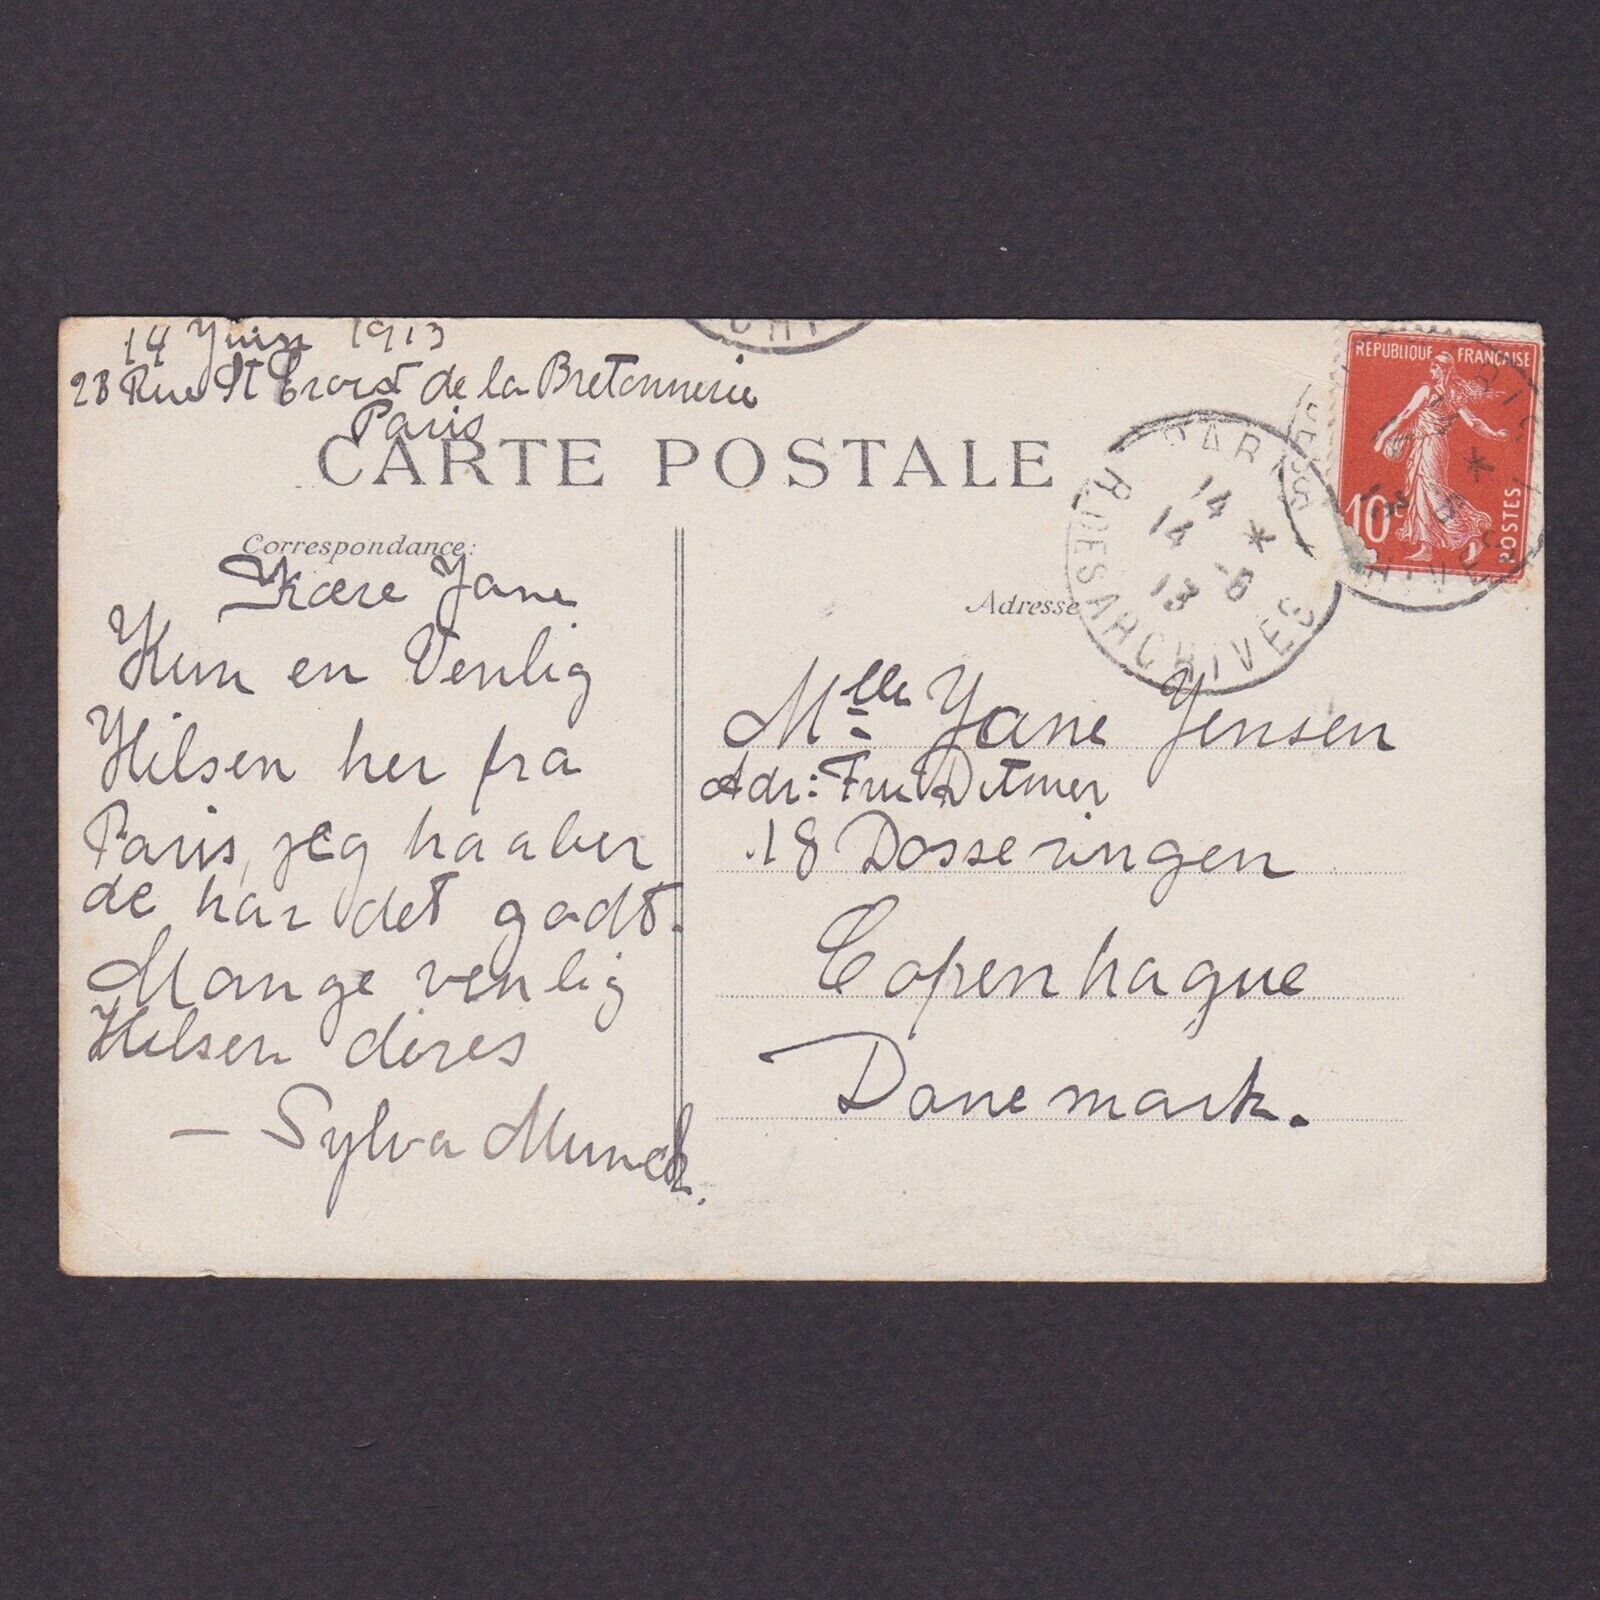 14 Juin 1913
28 Rue St Croix de la Bretonnerie
Paris
CARTE POSTALE
Correspondance:
Kære Jane
Kun en Venlig
Hilsen her fra
Paris, jeg haaber
de har det godt.
Mange venlig
Hilsen deres
— Sylva Munck.
Adresse
Mlle Jane Jensen
Adr: Fru Ditmer
18 Dosseringen
Copenhague
Danemark.
REPUBLIQUE FRANÇAISE
10c
POSTES
PARIS
14 *
14 -6
13
R. DES ARCHIVES